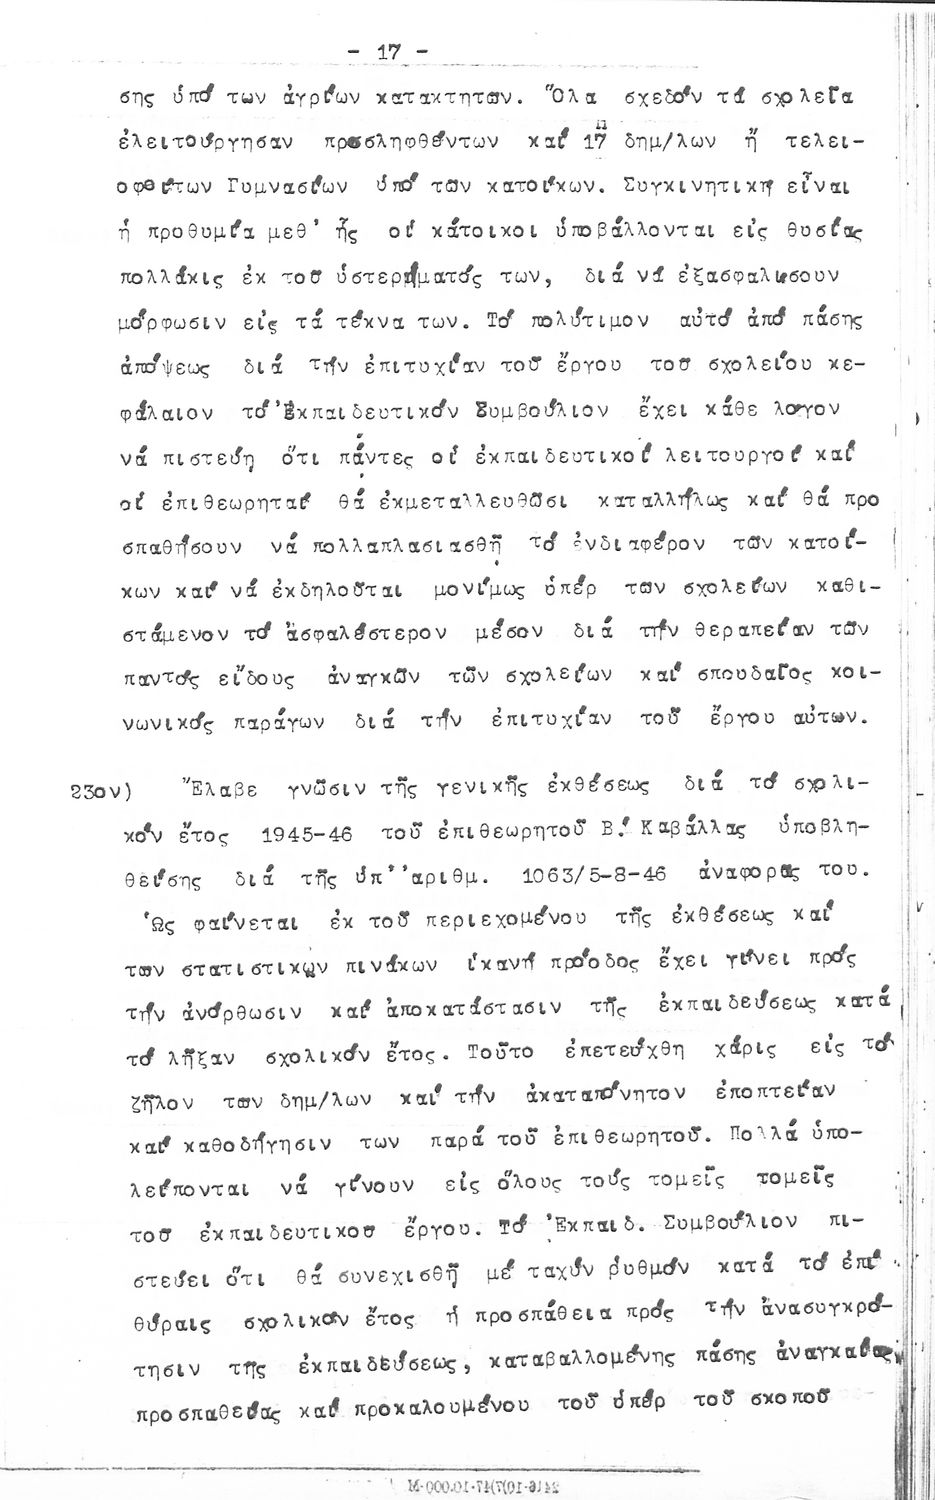 - 17 -
σης ὑπό των ἀγρίων κατακτητων. Ὅλα σχεδόν τά σχολεῖα
ἐλειτούργησαν προσληφθέντων καί 17 δημ/λων ἤ τελει-
οφοίτων Γυμνασίων ὑπό των κατοίκων. Συγκινητική εἶναι
ἡ προθυμία μεθ' ἧς οἱ κάτοικοι ὑποβάλλονται εἰς θυσίας
πολλάκις ἐκ του ὑστερήματός των, διά νά ἐξασφαλίσουν
μόρφωσιν εἰς τά τέκνα των. Τό πολύτιμον αὐτό ἀπό πάσης
ἀπόψεως διά τήν ἐπιτυχίαν τοῦ ἔργου του σχολείου κε-
φάλαιον τό Ἐκπαιδευτικόν Συμβούλιον ἔχει κάθε λογον
νά πιστεύῃ ὅτι πάντες οἱ ἐκπαιδευτικοί λειτουργοί καί
οἱ ἐπιθεωρηταί θά ἐκμεταλλευθῶσι καταλλήλως καί θά προ
σπαθήσουν νά πολλαπλασιασθῇ τό ἐνδιαφέρον τῶν κατοί-
κων καί νά ἐκδηλοῦται μονίμως ὑπέρ των σχολείων καθι-
στάμενον τό ἀσφαλέστερον μέσον διά τήν θεραπείαν τῶν
παντός εἴδους ἀναγκῶν τῶν σχολείων καί σπουδαῖος κοι-
νωνικός παράγων διά τήν ἐπιτυχίαν τοῦ ἔργου αὐτων.
23ον) Ἔλαβε γνῶσιν τῆς γενικῆς ἐκθέσεως διά τό σχολι-
κόν ἔτος 1945-46 τοῦ ἐπιθεωρητοῦ Β! Καβάλλας ὑποβλη-
θείσης διά τῆς ὑπ''αριθμ. 1063/5-8-46 ἀναφορας του.
Ὡς φαίνεται ἐκ τοῦ περιεχομένου τῆς ἐκθέσεως καί
των στατιστικων πινάκων ἱκανή πρόοδος ἔχει γίνει πρός
τήν ἀνόρθωσιν καί ἀποκατάστασιν τῆς ἐκπαιδεύσεως κατά
τό λῆξαν σχολικόν ἔτος. Τοῦτο ἐπετεύχθη χάρις εἰς τό
ζῆλον των δημ/λων καί τήν ἀκαταπόνητον ἐποπτείαν
καί καθοδήγησιν των παρά τοῦ ἐπιθεωρητοῦ. Πολλά ὑπο-
λείπονται νά γίνουν εἰς ὅλους τούς τομεῖς τομεῖς
του ἐκπαιδευτικου ἔργου. Τό Ἐκπαιδ. Συμβούλιον πι-
στεύει ὅτι θά συνεχισθῇ μέ ταχύν ρυθμόν κατά τό ἐπί
θύραις σχολικόν ἔτος ἡ προσπάθεια πρός τήν ἀνασυγκρό-
τησιν της ἐκπαιδεύσεως, καταβαλλομένης πάσης ἀναγκαίας
προσπαθείας καί προκαλουμένου τοῦ ὑπέρ τοῦ σκοποῦ